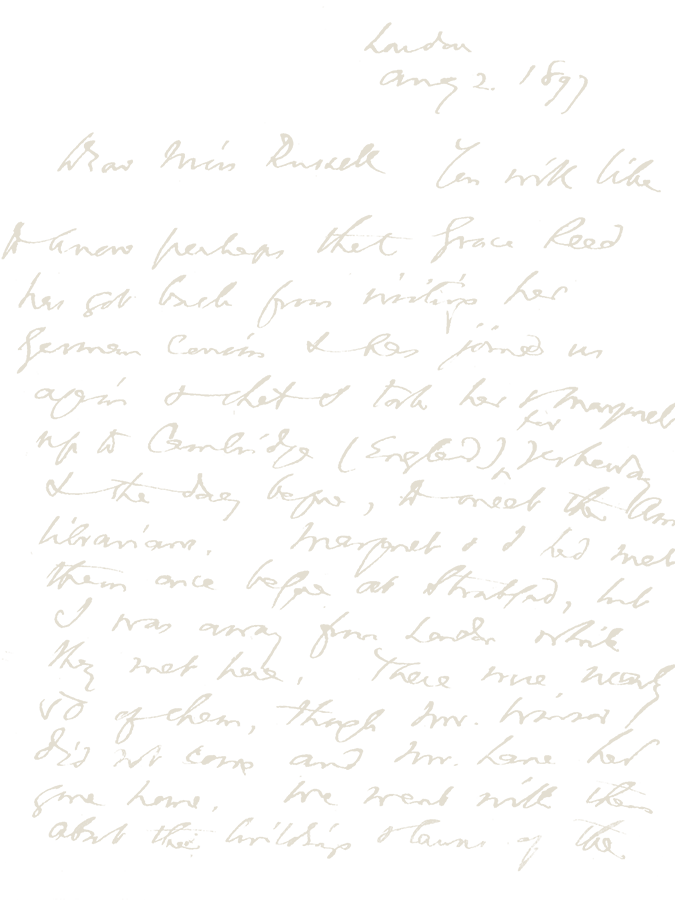 London
Aug 2. 1897
Dear Miss Russell You will like
to know perhaps that Grace Reed
has got back from visiting her
German Cousins & has joined us
again & that I took her & Margaret
up to Cambridge (England), for yesterday
& the day before, to meet the Am
librarians. Margaret & I had met
them once before at Stratford, but
I was away from London while
they met here. There were nearly
50 of them, though Mr. Winsor
did not come and Mr. Lane had
gone home. We went with them
about the buildings & lawns of the